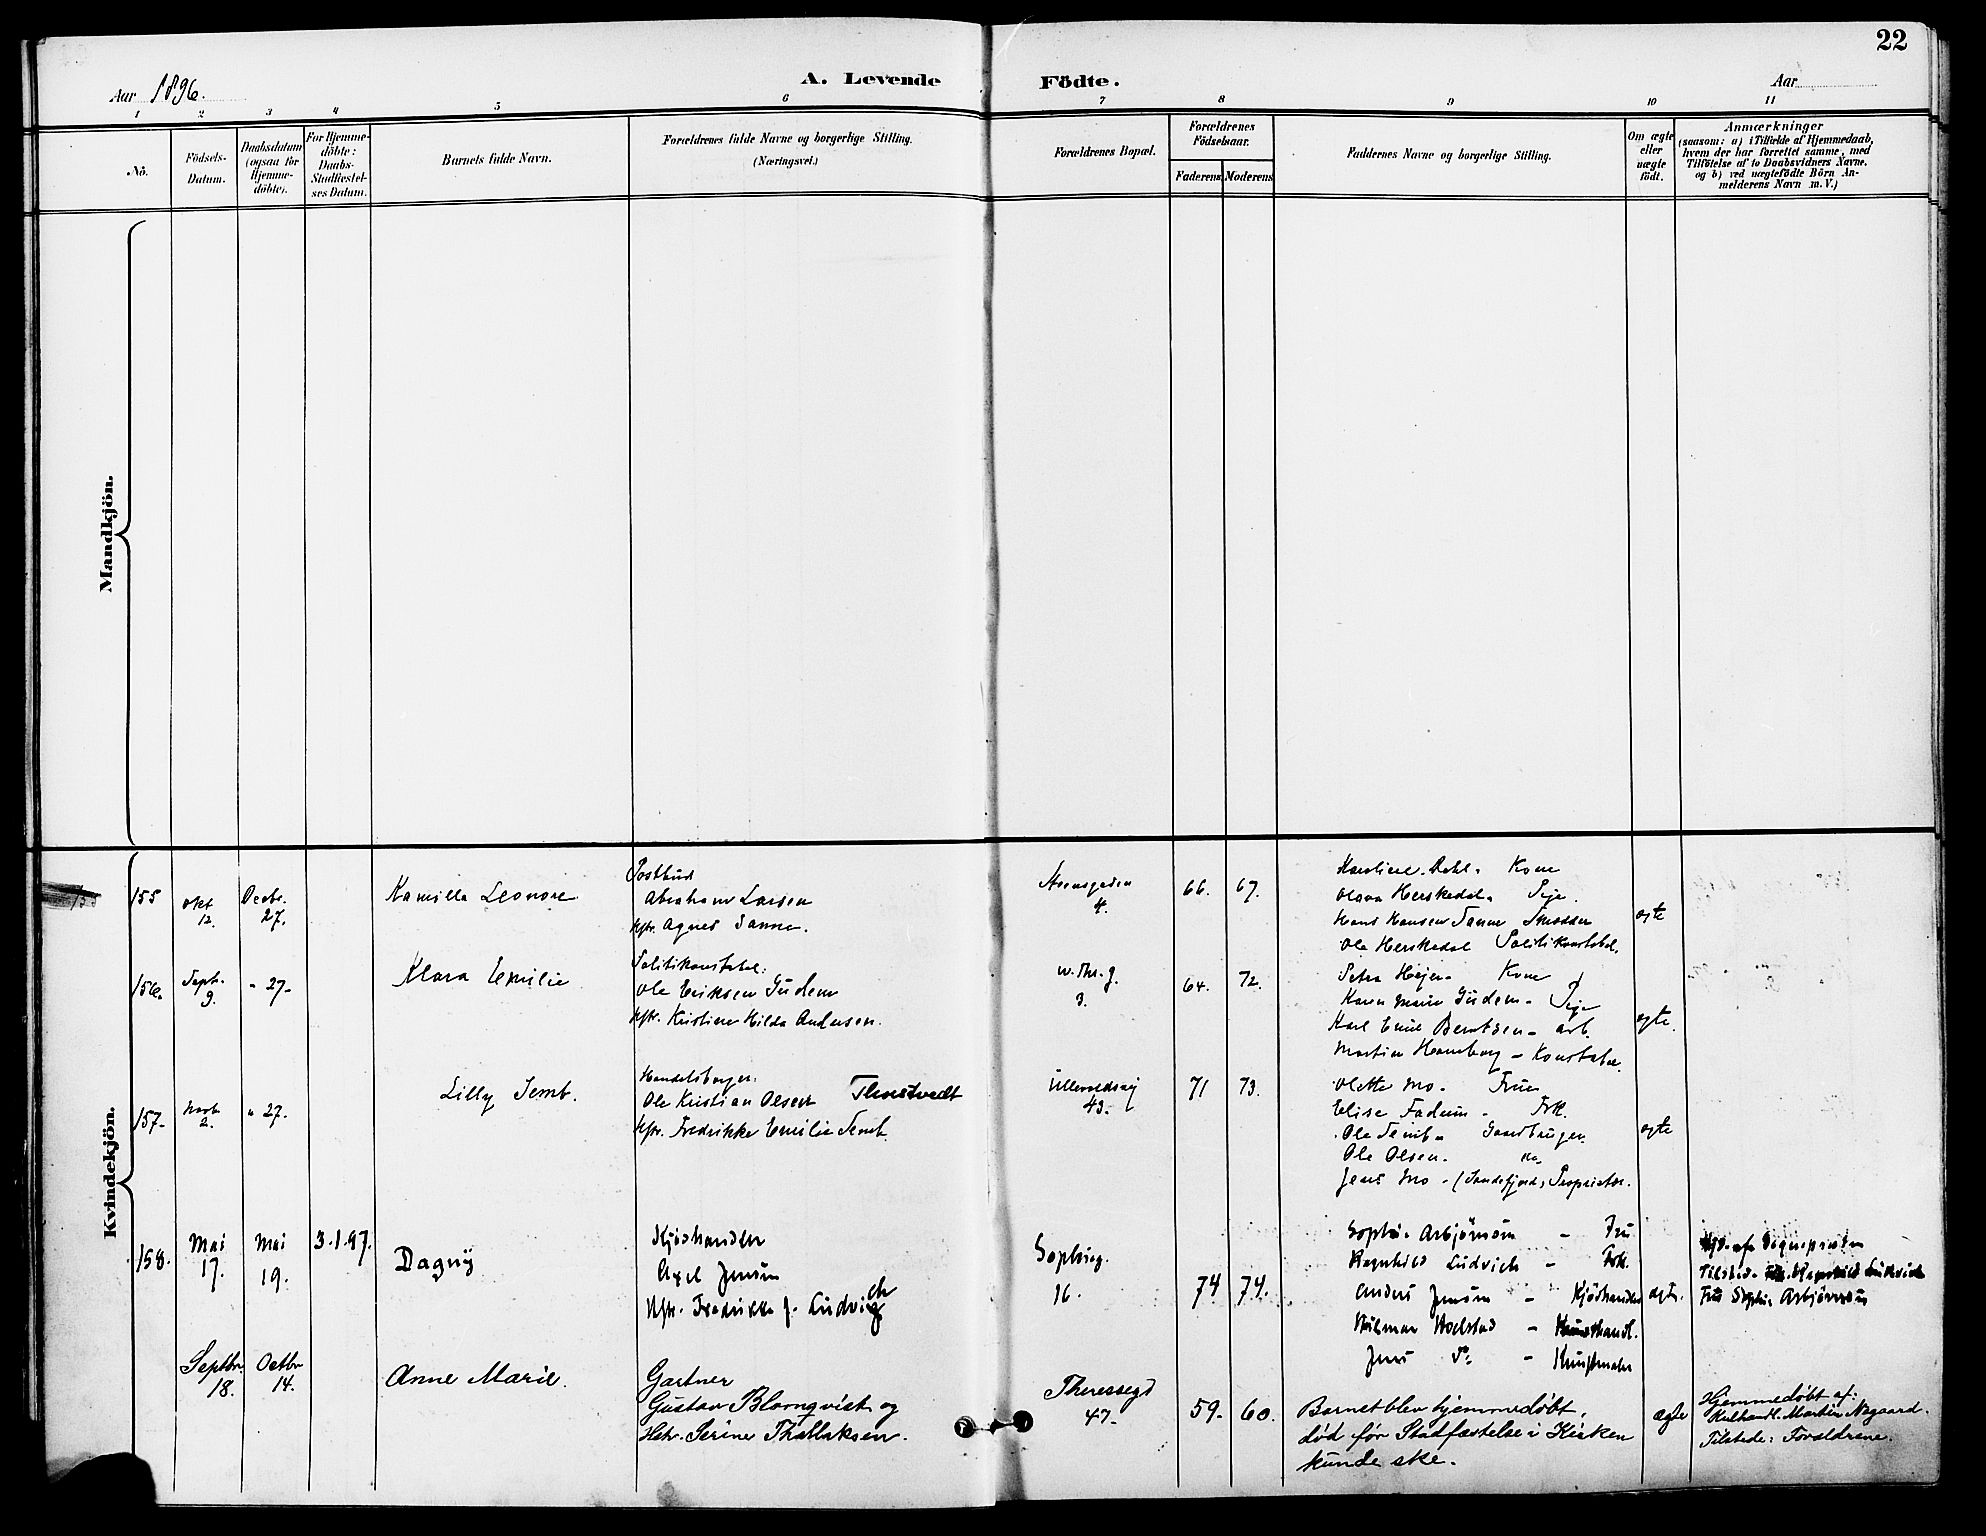 22
Aar 1896.
A. Levende Födte.
Aar
1 2 3 4 5 6 7 8 9 10 11
Nö.
Födsels-Datum.
Daabsdatum (ogsaa for Hjemme-döbte).
For Hjemme-döbte: Daabs-Stadfæstel-ses Datum.
Barnets fulde Navn.
Forældrenes fulde Navne og borgerlige Stilling. (Næringsvei.)
Forældrenes Bopæl.
Forældrenes Födselsaar.
Faderens Moderens
Faddernes Navne og borgerlige Stilling.
Om ægte eller uægte födt.
Anmærkninger
(saasom: a) i Tilfælde af Hjemmedaab,
hvem der har forrettet samme, med
Tilföielse af to Daabsvidners Navne.
og b) ved uægtefödte Börn An-
melderens Navn m. V.)
Mandkjön.
Kvindekjön.
155 Okt. 12. Decbr. 27. Kamilla Leonore
Postbud
Abraham Larsen
Agnes Sanne.
4. 66. 67.
Karoline Dahl. Kone
Olava Herskedal. Pige.
Hans Hansen Sanne
Ole Herskedal Politikonstabel.
ægte
156. Septr. 9. " 27. Klara Emilie
Politikonstabel.
Ole Eriksen Gudem
Kristine Hilda Andersen.
3. 64. 72.
Petra Kone
Karen Marie Gudem. Pige
Karl Emil Berntsen. arb.
Martin Hamborg - Konstabel.
ægte.
157. 2. " 27. Lilly Semb.
Handelsborger.
Ole Kristian Olsen Thorstvedt
Fredrikke Emilie Semb.
Ullevoldsvej 43. 71 73.
Olette Mo. Frue
Elise Fadum. Frk.
Ole Semb. Gaardbruger
Ole Olsen.
Jens Mo. (Sandefjord, Proprietær.
ægte
158. Mai 17. Mai 19. 3.1.97. Dagny
Kjødhandler
Axel Jensen
Hstr. Fredrikke J. Ludvigch
Sophieg. 16. 74 74.
Sophie Asbjørnsen - Fru
Ragnhild Ludvich - Frk.
Anders Jensen - Kjødhandler
Hilmar - handl.
Jens Do. -
ægte.
Hjd. af Sognepresten
Tilstede Frk. Ragnhild Ludvich
Fru Sophie Asbjørnsen
Septbr. 18. Octbr. 14. Anne Marie.
Gartner
Gustav Blomqvist og
Hstr. Serine Thollaksen.
Theresesgd 47. 59. 60.
Barnet blev hjemmedøbt,
død før Stadfæstelse i Kirken
kunde ske.
ægte
Hjemmedøbt af:
Kulhandl. Martin Aagaard.
Tilstede: Forældrene.